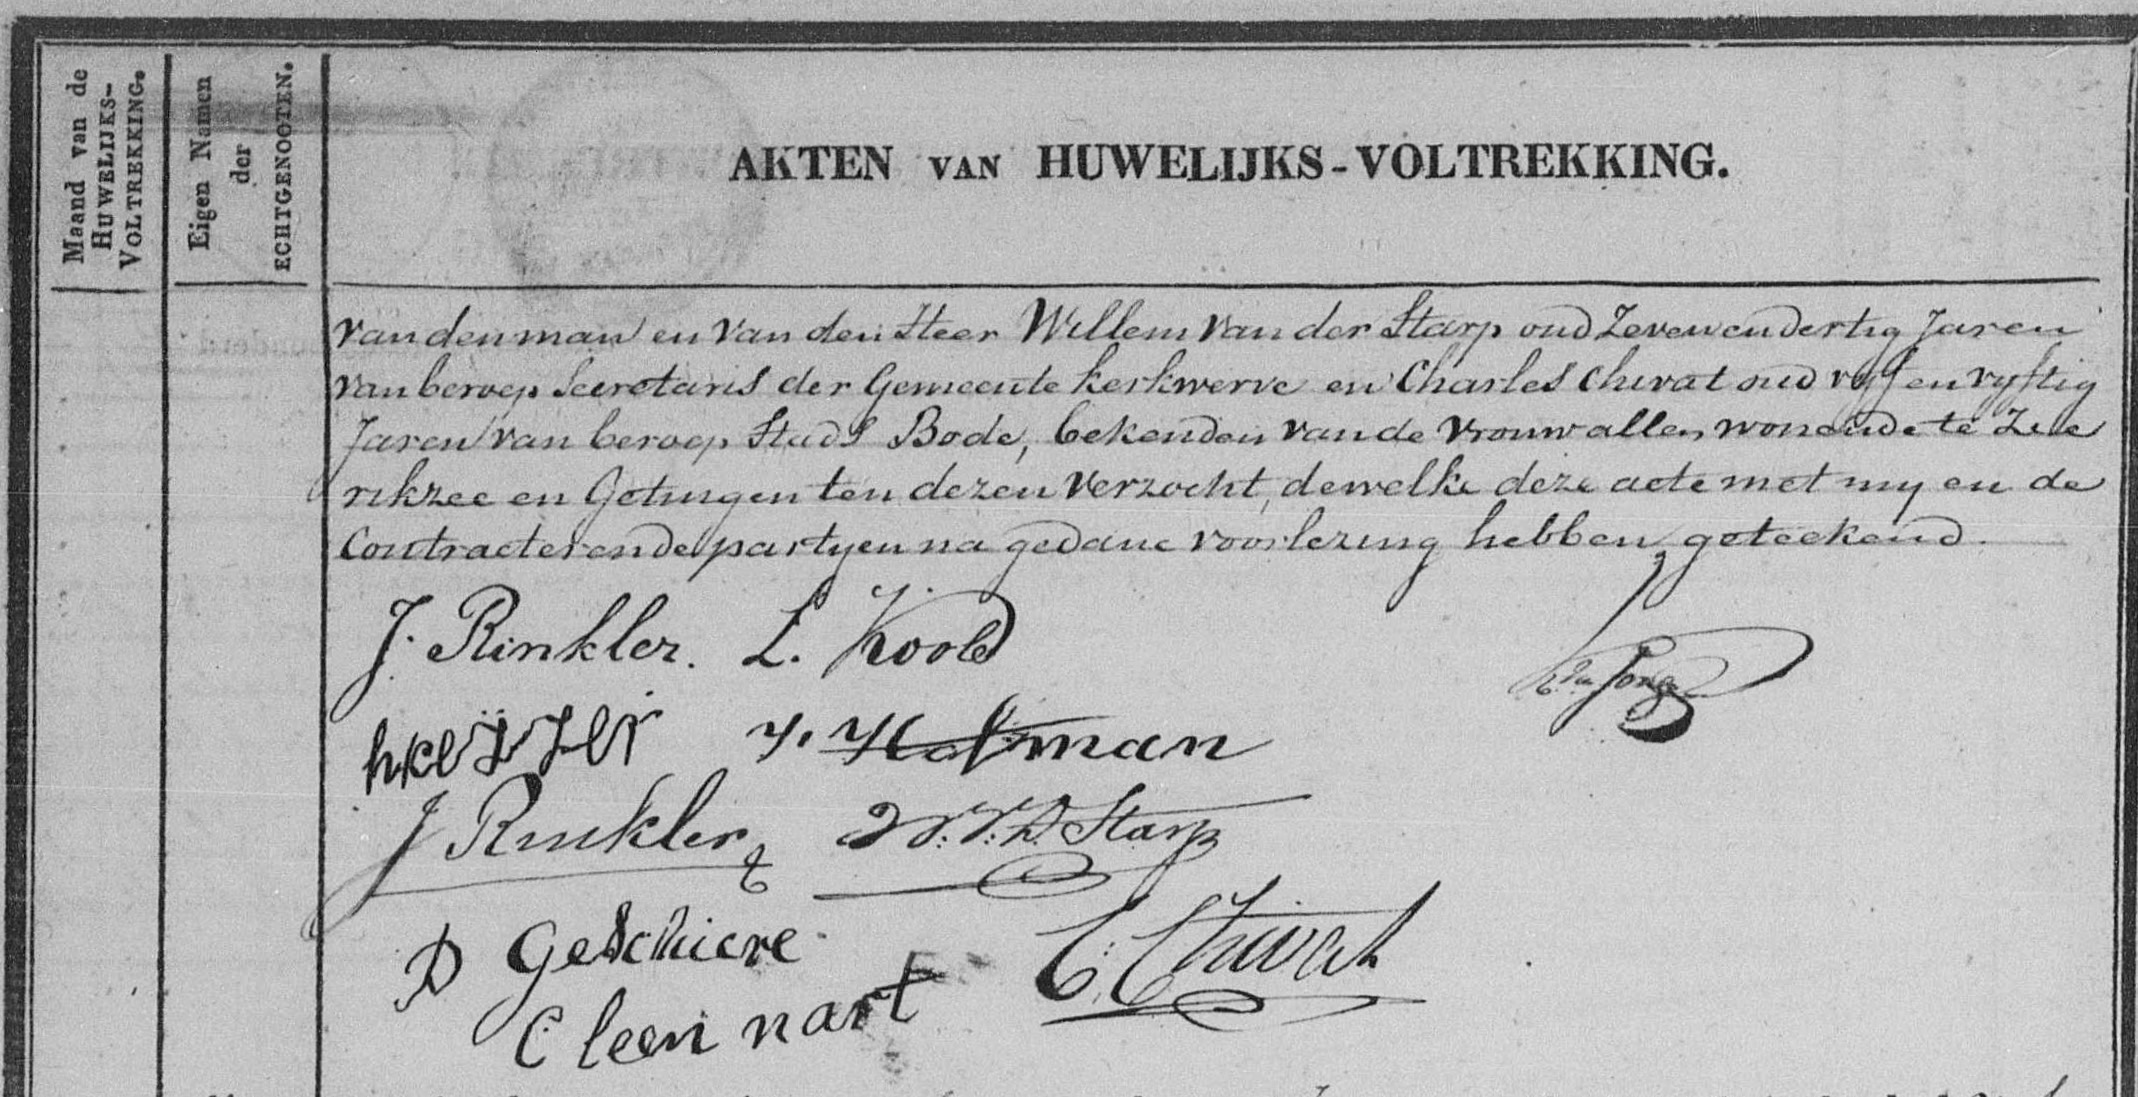 Maand van de
HUWELIJKS-
VOLTREKKING.
Eigen Namen
der
ECHTGENOOTEN.
AKTEN VAN HUWELIJKS-VOLTREKKING.
van den man en van den Heer Willem van der Starp oud Zevenendertig Jaren
van beroep Secretaris der Gemeente Kerkwerve en Charles Chivat oud vyf en vyftig
Jaren van beroep Stads Bode, bekenden van de vrouw allen wonende te Zie
rikzee en Getuigen ten dezen verzocht, dewelke deze acte met my en de
Contracterende partyen na gedane voorlezing hebben geteekend.
J. Rinkler. L. Koole
de Jonge
h keyzer J. Hofman
J Rinkler W. V. D. Starp
D Geschiere C. Chivat
C leen nart